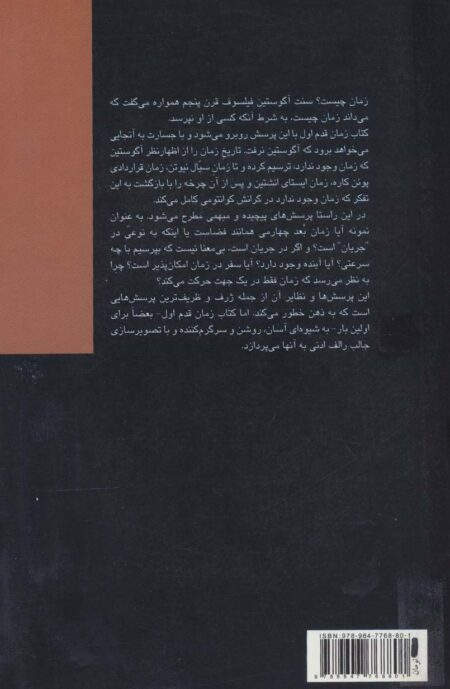 زمان چیست؟ سنت آگوستین فیلسوف قرن پنجم همواره می‌گفت که
می‌داند زمان چیست، به شرط آنکه کسی از او نپرسد.
کتاب زمان قدم اول با این پرسش روبرو می‌شود و با جسارت به آنجایی
می‌خواهد برود که آگوستین نرفت. تاریخ زمان را از اظهارنظر آگوستین
که زمان وجود ندارد، ترسیم کرده و تا زمان سیّال نیوتن، زمان قراردادی
پوئن کاره، زمان ایستای انشتین و پس از آن چرخه را با بازگشت به این
تفکر که زمان وجود ندارد در گرانش کوانتومی کامل می‌کند.
در این راستا پرسش‌های پیچیده و مبهمی مطرح می‌شود. به عنوان
نمونه آیا زمان بُعد چهارمی همانند فضاست یا اینکه به نوعی در
"جریان" است؟ و اگر در جریان است، بی‌معنا نیست که بپرسیم با چه
سرعتی؟ آیا آینده وجود دارد؟ آیا سفر در زمان امکان‌پذیر است؟ چرا
به نظر می‌رسد که زمان فقط در یک جهت حرکت می‌کند؟
این پرسش‌ها و نظایر آن از جمله ژرف و ظریف‌ترین پرسش‌هایی
است که به ذهن خطور می‌کند، اما کتاب زمان قدم اول- بعضاً برای
اولین بار- به شیوه‌ای آسان، روشن و سرگرم‌کننده و با تصویرسازی
جالب رالف ادنی به آنها می‌پردازد.
ISBN: 978-964-7768-80-1
9 789647 768801
تومان